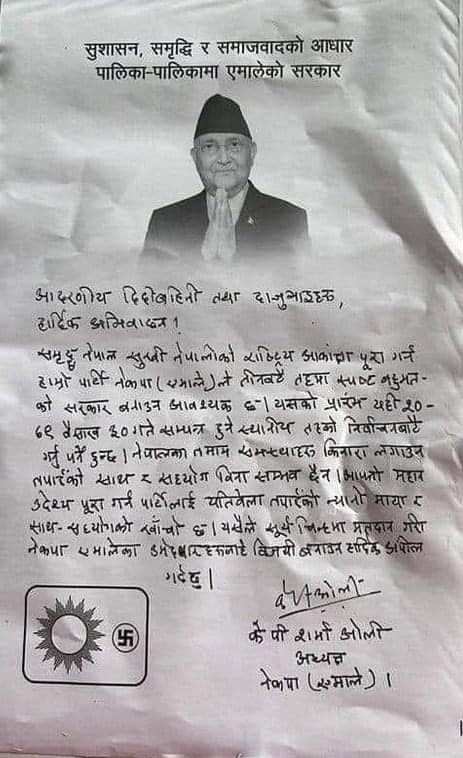 सुशासन, समृद्धि र समाजवादको आधार
पालिका-पालिकामा एमालेको सरकार
आदरणीय दिदीबहिनी तथा दाजुभाइहरू,
हार्दिक अभिवादन !
समृद्ध नेपाल सुखी नेपालीको राष्ट्रिय आकांक्षा पूरा गर्न
हाम्रो पार्टि नेकपा (एमाले)ले तीनवटै तहमा स्पष्ट बहुमत-
को सरकार बनाउन आवश्यक छ। यसको प्रारंभ यही २०-
७९ बैसाख ३० गते सम्पन्न हुने स्थानीय तहको निर्वाचनबाट
गर्नु पर्ने हुन्छ। नेपालका तमाम समस्याहरू किनारा लगाउन
तपाईंको साथ र सहयोग विना सम्भव छैन। आफ्नो महान
उद्देश्य पूरा गर्न पार्टिलाई यतिबेला तपाईंको न्यानो माया र
साथ-सहयोगको खाँचो छ। यसैले सूर्य चिन्हमा मतदान गरी
नेकपा एमालेका उमेदवारहरूलाई विजयी बनाउन हार्दिक अपील
गर्दछु।
के पी शर्मा ओली
अध्यक्ष
नेकपा (एमाले)।